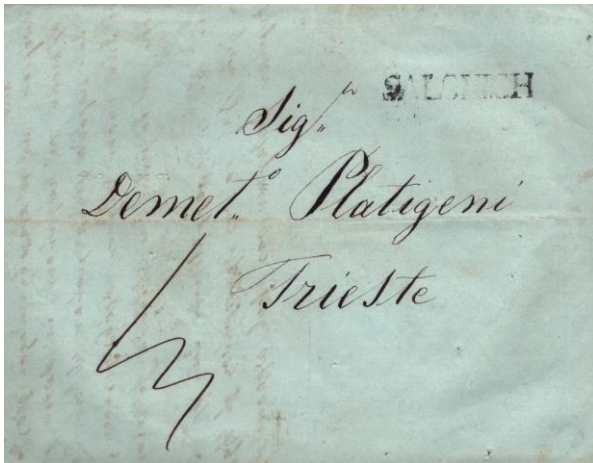 SALONICH
Sig.r
Demet.o Platigeni
Trieste